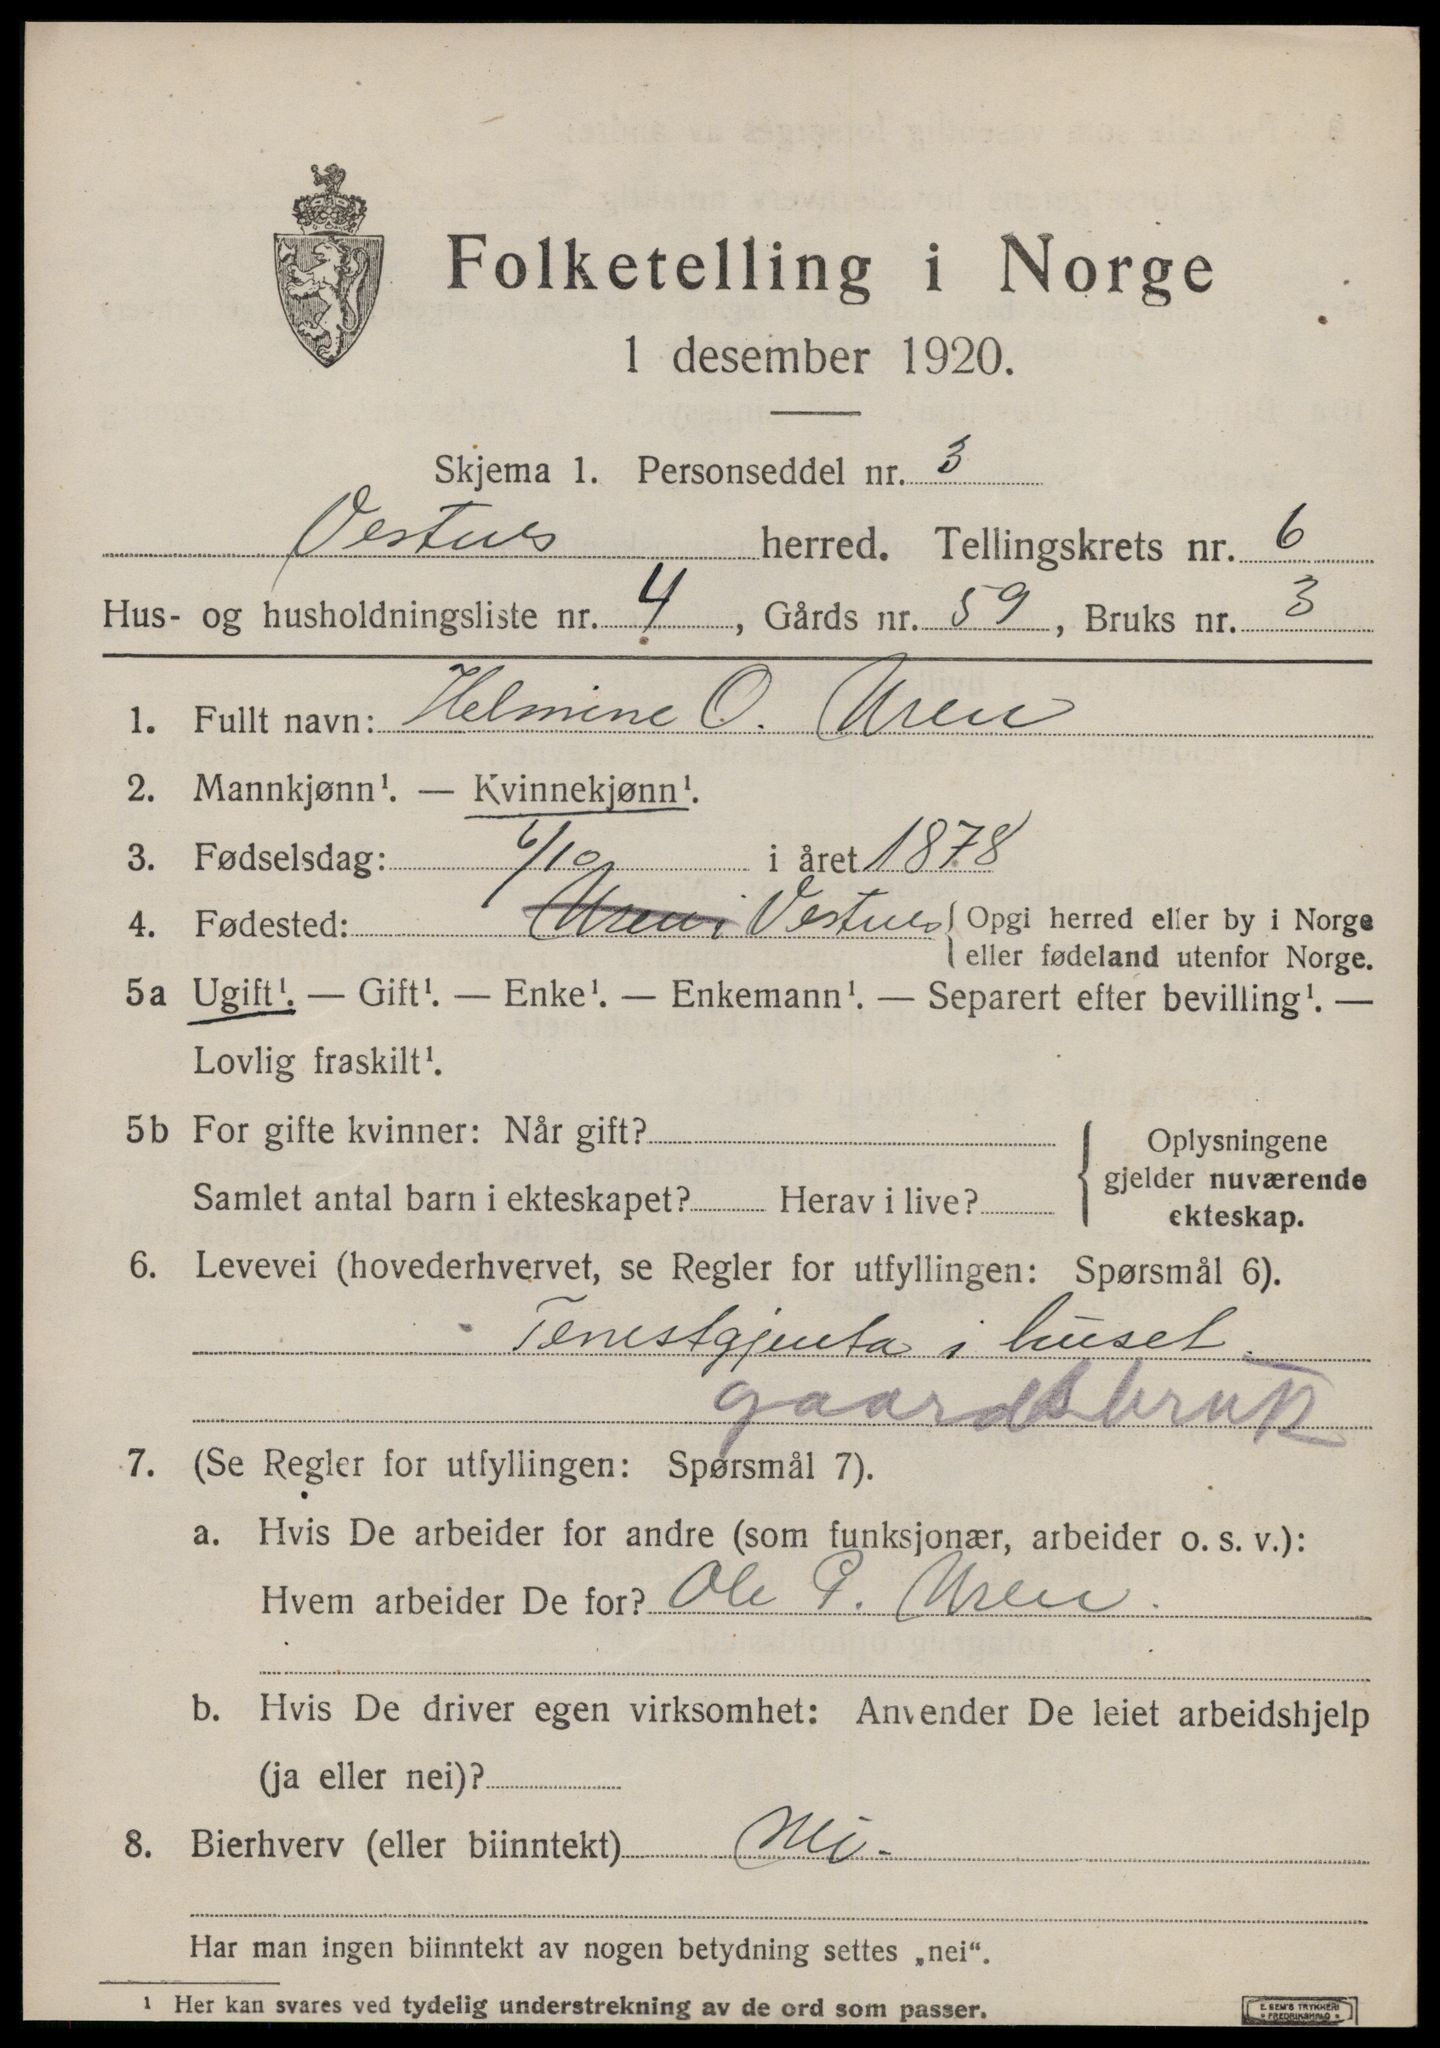 Folketelling i Norge
1 desember 1920.
Skjema 1. Personseddel nr. 3
Vestnes herred. Tellingskrets nr. 6
Hus- og husholdningsliste nr. 4, Gårds nr. 59, Bruks nr. 3
1. Fullt navn: Helmine O. Uren
2. Mannkjønn¹. — Kvinnekjønn¹.
3. Fødselsdag: 6/10 i året 1878
4. Fødested: Uren i Vestnes { Opgi herred eller by i Norge
eller fødeland utenfor Norge.
5a Ugift¹. — Gift¹. — Enke¹. — Enkemann¹. — Separert efter bevilling¹. —
Lovlig fraskilt¹.
5b For gifte kvinner: Når gift? { Oplysningene
gjelder nuværende
Samlet antal barn i ekteskapet? Herav i live? ekteskap.
6. Levevei (hovederhvervet, se Regler for utfyllingen: Spørsmål 6).
Tenestgjenta i huset
gaardsbruk
7. (Se Regler for utfyllingen: Spørsmål 7).
a. Hvis De arbeider for andre (som funksjonær, arbeider o. s. v.):
Hvem arbeider De for? Ole P. Uren.
b. Hvis De driver egen virksomhet: Anvender De leiet arbeidshjelp
(ja eller nei)?
8. Bierhverv (eller biinntekt) Nei.
Har man ingen biinntekt av nogen betydning settes „nei“.
¹ Her kan svares ved tydelig understrekning av de ord som passer.
E. SEM'S TRYKKERI
• FREDRIKSHALD •